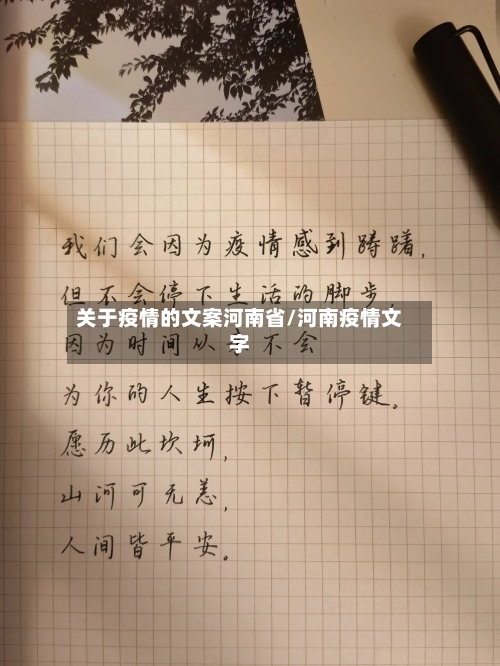 我们会因为疫情感到踌躇,
但不会停下生活的脚步,
关于疫情的文案河南省/河南疫情文
字
因为时间从不会
为你的人生按下暂停键。
愿历此坎坷,
山河可无恙,
人间皆平安。